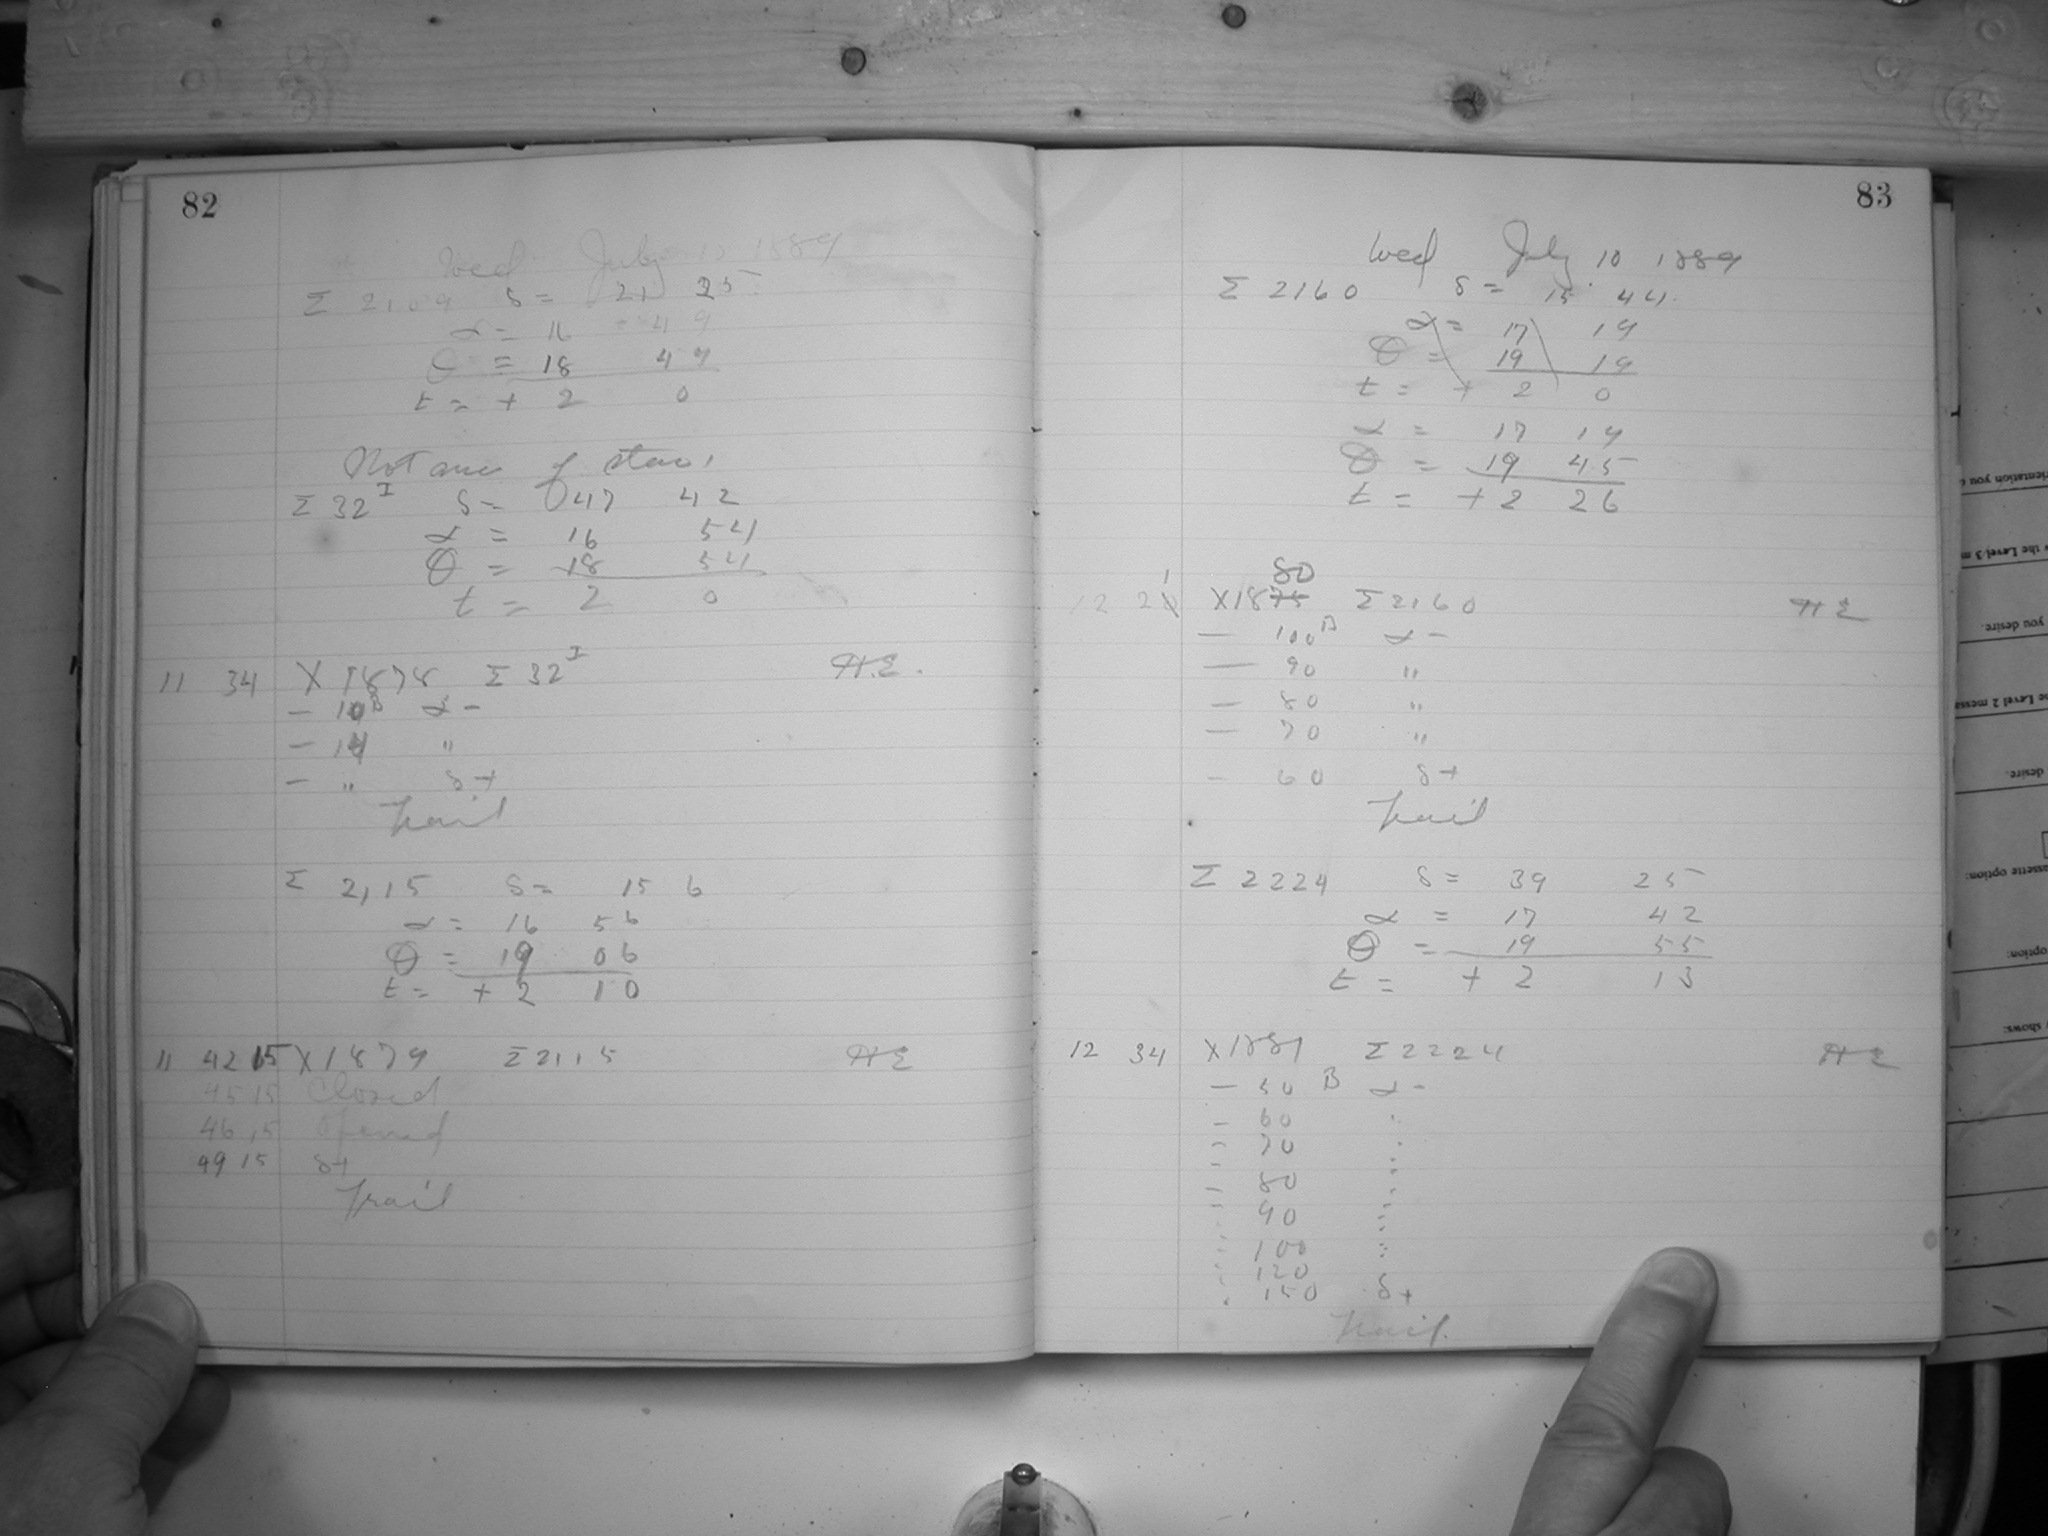 82
Wed July 10 1889
Σ 2109 δ = 21 25
α = 16 49
θ = 18 49
t = + 2 0
Not an of star,
Σ 32 I δ = 47 42
α = 16 54
θ = 18 54
t = 2 0
11 34 X 1878 Σ 32 I H.E.
— 10 B α —
— 14 "
— " δ +
Trail
Σ 2115 δ = 15 6
α = 16 56
θ = 19 06
t = + 2 10
11 42 15 X 1879 Σ 2115 HE
45 15 Closed
46 15 Opened
49 15 δ +
Trail
83
Wed July 10 1889
Σ 2160 δ = 15 44
α = 17 19
θ = 19 19
t = + 2 0
α = 17 19
θ = 19 45
t = + 2 26
80
12 21 X 1875 Σ 2160 HE
— 100 B α —
— 90 "
— 80 "
— 70 "
— 60 δ +
Trail
Σ 2224 δ = 39 25
α = 17 42
θ = 19 55
t = + 2 13
12 34 X 1881 Σ 2224 HE
— 50 B α —
— 60 "
" 70 "
— 80 "
" 90 "
" 100 "
" 120
" 150 δ +
Trail.
rientation you
the Level 3 m
you desire.
e Level 2 messa
desire.
ssette option:
option:
shows: